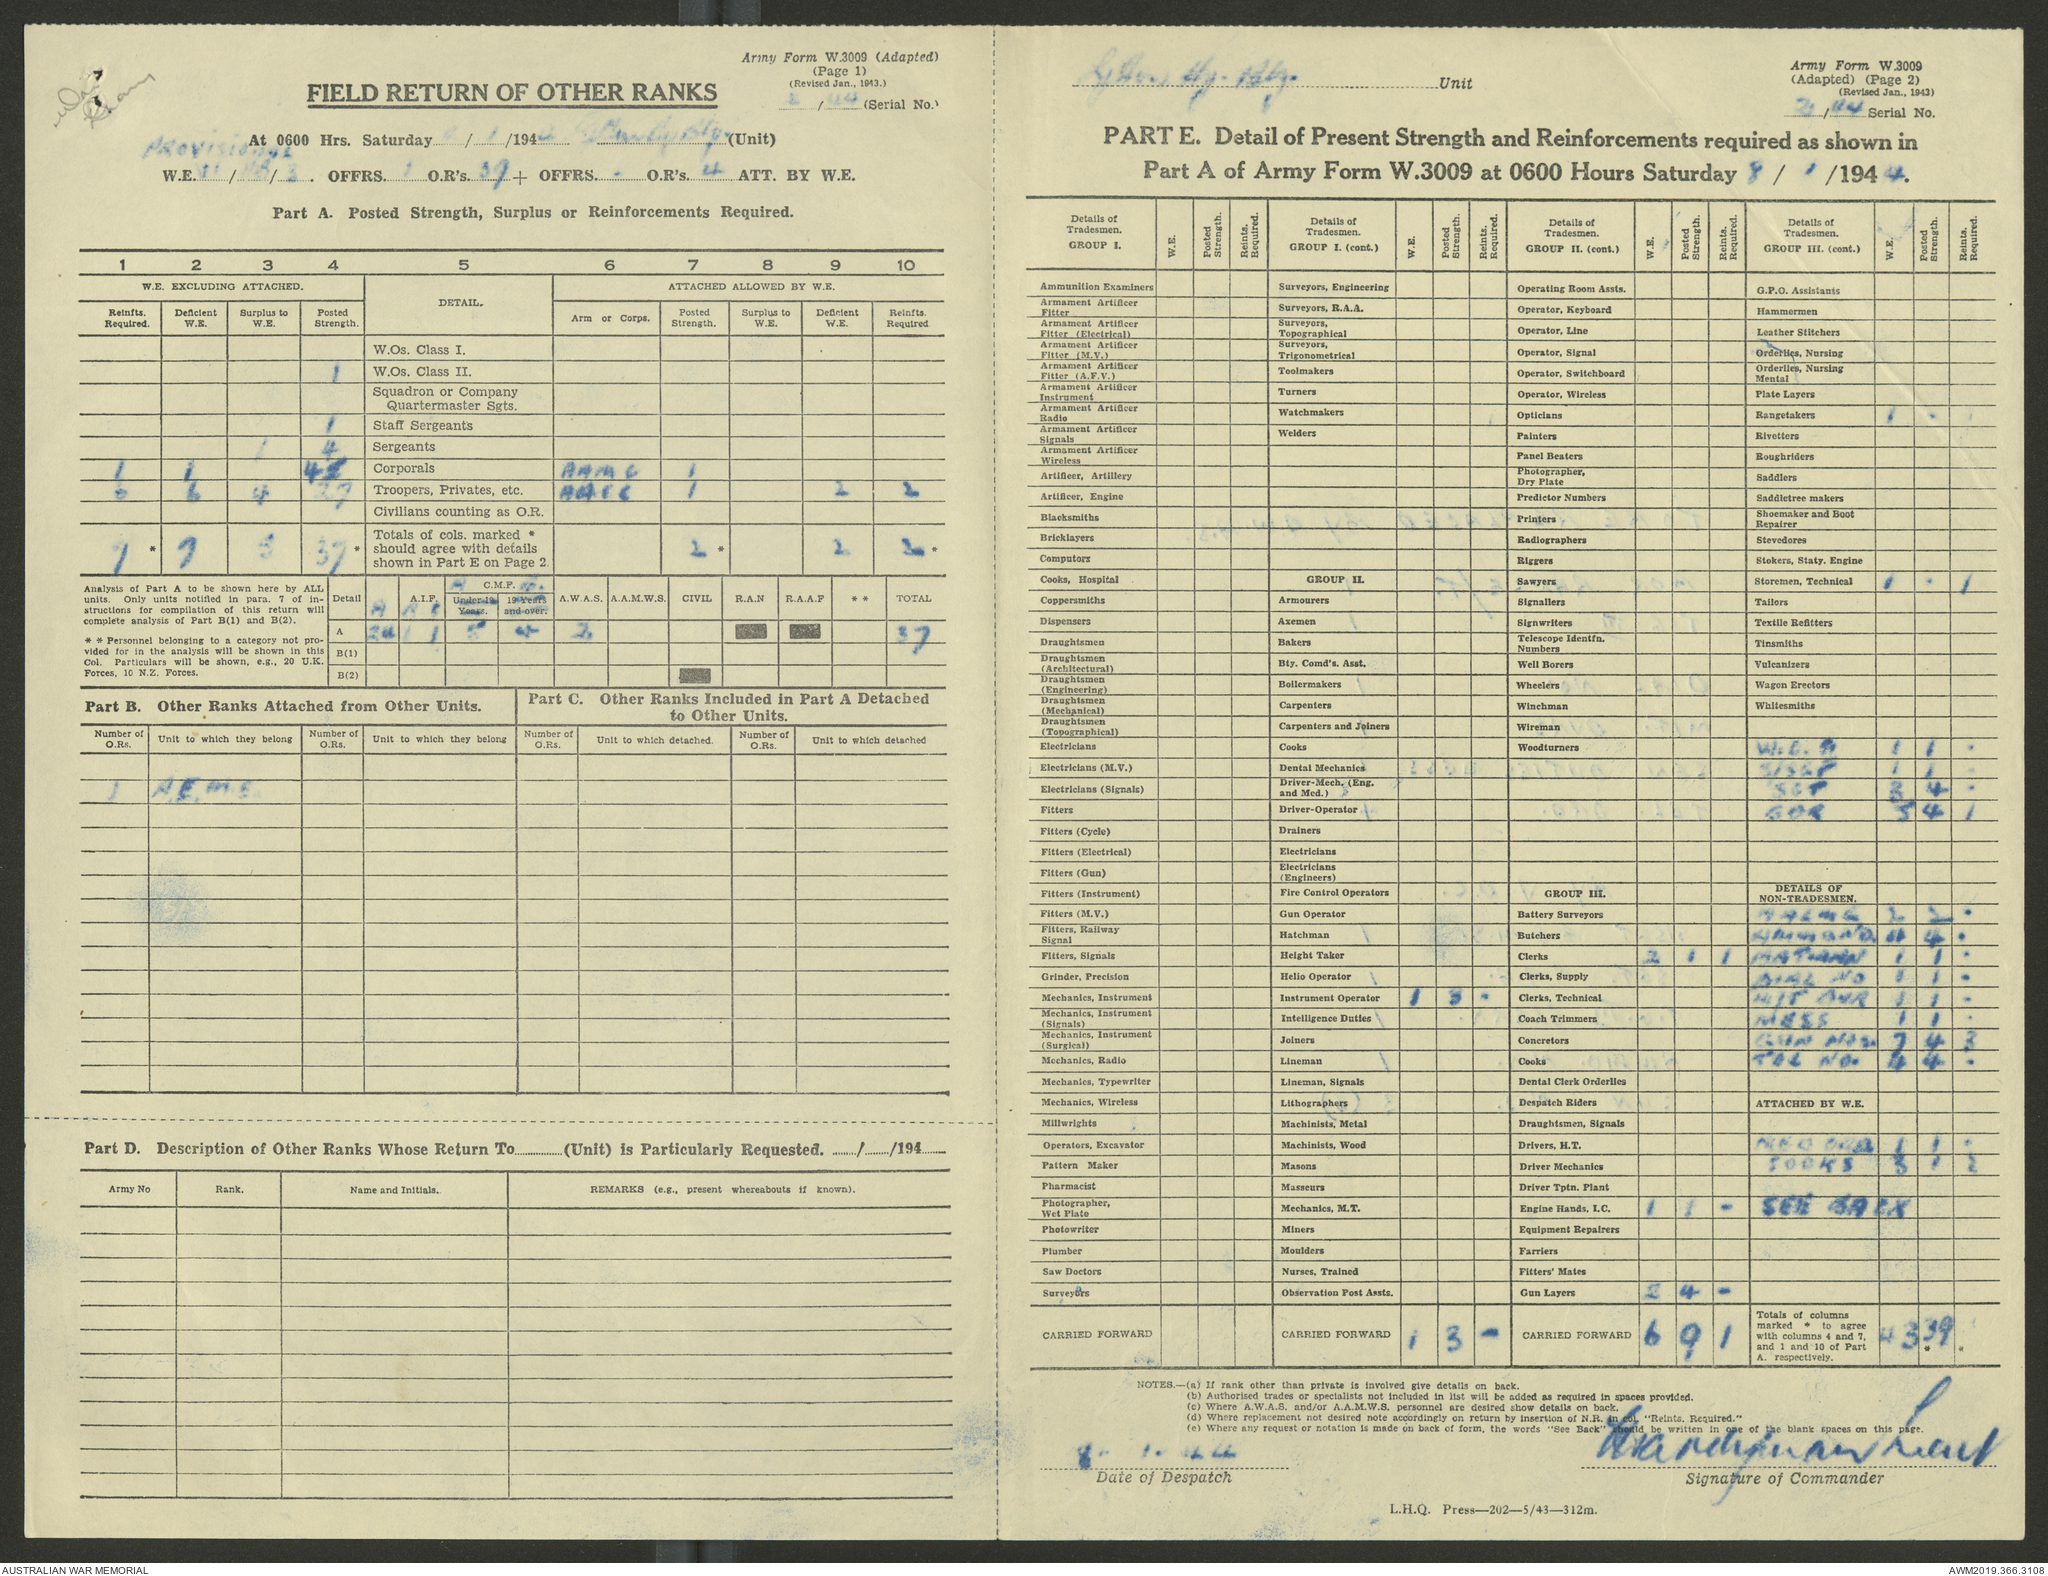 Army Form W.3009 (Adapted)
(Page 1)
(Revised Jan., 1943.)
FIELD RETURN OF OTHER RANKS
/44 (Serial No.)
At 0600 Hrs. Saturday / 1 /194 (Unit)
PROVISIONAL
W.E. / / . OFFRS. 1 O.R's. 39 + OFFRS. - O.R's. 4 ATT. BY W.E.
Part A. Posted Strength, Surplus or Reinforcements Required.
1 2 3 4 5 6 7 8 9 10
W.E. EXCLUDING ATTACHED. DETAIL. ATTACHED ALLOWED BY W.E.
Reinfts. Required. Deficient W.E. Surplus to W.E. Posted Strength. Arm or Corps. Posted Strength. Surplus to W.E. Deficient W.E. Reinfts. Required
W.Os. Class I.
1 W.Os. Class II.
Squadron or Company
Quartermaster Sgts.
1 Staff Sergeants
1 4 Sergeants
1 1 Corporals AAMC 1
6 6 4 27 Troopers, Privates, etc. 1 2 2
Civilians counting as O.R.
Totals of cols. marked *
should agree with details
shown in Part E on Page 2.
7 * 7 5 37 * 2 * 2 2 *
Analysis of Part A to be shown here by ALL
units. Only units notified in para. 7 of in-
structions for compilation of this return will
complete analysis of Part B(1) and B(2).
* * Personnel belonging to a category not pro-
vided for in the analysis will be shown in this
Col. Particulars will be shown, e.g., 20 U.K.
Forces, 10 N.Z. Forces.
Detail A.I.F. C.M.F. Under 19 Years. 19 Years and over. A.W.A.S. A.A.M.W.S. CIVIL R.A.N R.A.A.F * * TOTAL
A 24 1 1 5 4 2 37
B(1)
B(2)
Part B. Other Ranks Attached from Other Units.
Part C. Other Ranks Included in Part A Detached
to Other Units.
Number of O.Rs. Unit to which they belong Number of O.Rs. Unit to which they belong Number of O.Rs. Unit to which detached. Number of O.Rs. Unit to which detached
1 A.E.M.E.
Part D. Description of Other Ranks Whose Return To (Unit) is Particularly Requested. / /194
Army No Rank. Name and Initials. REMARKS (e.g., present whereabouts if known).
Unit
Army Form W.3009
(Adapted) (Page 2)
(Revised Jan., 1943)
2/44 Serial No.
PART E. Detail of Present Strength and Reinforcements required as shown in
Part A of Army Form W.3009 at 0600 Hours Saturday 8 / 1 /1944.
Details of Tradesmen. GROUP I. W.E. Posted Strength. Reints. Required.
Ammunition Examiners
Armament Artificer Fitter
Armament Artificer Fitter (Electrical)
Armament Artificer Fitter (M.V.)
Armament Artificer Fitter (A.F.V.)
Armament Artificer Instrument
Armament Artificer Radio
Armament Artificer Signals
Armament Artificer Wireless
Artificer, Artillery
Artificer, Engine
Blacksmiths
Bricklayers
Computors
Cooks, Hospital
Coppersmiths
Dispensers
Draughtsmen
Draughtsmen (Architectural)
Draughtsmen (Engineering)
Draughtsmen (Mechanical)
Draughtsmen (Topographical)
Electricians
Electricians (M.V.)
Electricians (Signals)
Fitters
Fitters (Cycle)
Fitters (Electrical)
Fitters (Gun)
Fitters (Instrument)
Fitters (M.V.)
Fitters, Railway Signal
Fitters, Signals
Grinder, Precision
Mechanics, Instrument
Mechanics, Instrument (Signals)
Mechanics, Instrument (Surgical)
Mechanics, Radio
Mechanics, Typewriter
Mechanics, Wireless
Millwrights
Operators, Excavator
Pattern Maker
Pharmacist
Photographer, Wet Plate
Photowriter
Plumber
Saw Doctors
Surveyors
CARRIED FORWARD
Details of Tradesmen. GROUP I. (cont.) W.E. Posted Strength. Reints. Required.
Surveyors, Engineering
Surveyors, R.A.A.
Surveyors, Topographical
Surveyors, Trigonometrical
Toolmakers
Turners
Watchmakers
Welders
GROUP II.
Armourers
Axemen
Bakers
Bty. Comd's. Asst.
Boilermakers
Carpenters
Carpenters and Joiners
Cooks
Dental Mechanics
Driver-Mech. (Eng. and Med.)
Driver-Operator
Drainers
Electricians
Electricians (Engineers)
Fire Control Operators
Gun Operator
Hatchman
Height Taker
Helio Operator
Instrument Operator 1 3 -
Intelligence Duties
Joiners
Lineman
Lineman, Signals
Lithographers
Machinists, Metal
Machinists, Wood
Masons
Masseurs
Mechanics, M.T.
Miners
Moulders
Nurses, Trained
Observation Post Assts.
CARRIED FORWARD 1 3 -
Details of Tradesmen. GROUP II. (cont.) W.E. Posted Strength. Reints. Required.
Operating Room Assts.
Operator, Keyboard
Operator, Line
Operator, Signal
Operator, Switchboard
Operator, Wireless
Opticians
Painters
Panel Beaters
Photographer, Dry Plate
Predictor Numbers
Printers
Radiographers
Riggers
Sawyers
Signallers
Signwriters
Telescope Identfn. Numbers
Well Borers
Wheelers
Winchman
Wireman
Woodturners
GROUP III.
Battery Surveyors
Butchers
Clerks 2 1 1
Clerks, Supply
Clerks, Technical
Coach Trimmers
Concretors
Cooks
Dental Clerk Orderlies
Despatch Riders
Draughtsmen, Signals
Drivers, H.T.
Driver Mechanics
Driver Tptn. Plant
Engine Hands, I.C. 1 1 -
Equipment Repairers
Farriers
Fitters' Mates
Gun Layers 2 4 -
CARRIED FORWARD 6 9 1
Details of Tradesmen. GROUP III. (cont.) W.E. Posted Strength. Reints. Required.
G.P.O. Assistants
Hammermen
Leather Stitchers
Orderlies, Nursing
Orderlies, Nursing Mental
Plate Layers
Rangetakers 1 - 1
Rivetters
Roughriders
Saddlers
Saddletree makers
Shoemaker and Boot Repairer
Stevedores
Stokers, Staty. Engine
Storemen, Technical 1 - 1
Tailors
Textile Refitters
Tinsmiths
Vulcanizers
Wagon Erectors
Whitesmiths
W.O. II 1 1 -
S/SGT 1 1 -
SGT 3 4 -
BDR 5 4 1
DETAILS OF NON-TRADESMEN.
2 2 -
AMMN NO. 4 4 -
BATMAN 1 1 -
DIAL NO 1 1 -
1 1 -
MESS 1 1 -
GUN NOS. 7 4 3
TEL NO. 4 4 -
ATTACHED BY W.E.
1 1 -
COOKS 3 1 2
SEE BACK
Totals of columns marked * to agree with columns 4 and 7, and 1 and 10 of Part A. respectively. 43 39 * *
NOTES.—(a) If rank other than private is involved give details on back.
(b) Authorised trades or specialists not included in list will be added as required in spaces provided.
(c) Where A.W.A.S. and/or A.A.M.W.S. personnel are desired show details on back.
(d) Where replacement not desired note accordingly on return by insertion of N.R. in col. "Reints. Required."
(e) Where any request or notation is made on back of form, the words "See Back" should be written in one of the blank spaces on this page.
8 - 1 - 44
Lieut
Date of Despatch
Signature of Commander
L.H.Q. Press—202—5/43—312m.
AUSTRALIAN WAR MEMORIAL
AWM2019.366.3108